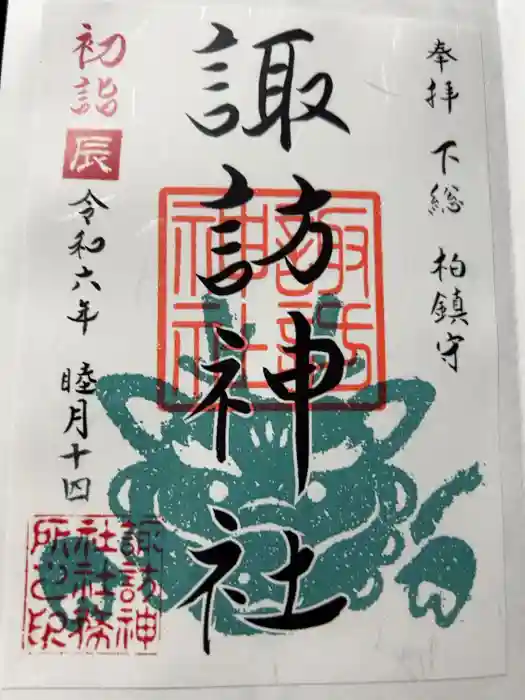 奉拝 下総 柏鎮守
諏訪神社
諏訪
神社
初詣
辰
令和六年 睦月十四
諏訪神
社社務
所之印